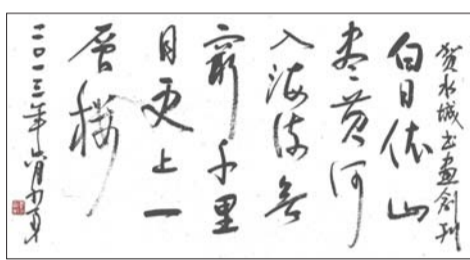 贺水城书画创刊
白日依山
盡黄河
入海流欲
窮千里
目更上一
層樓
二〇一三年